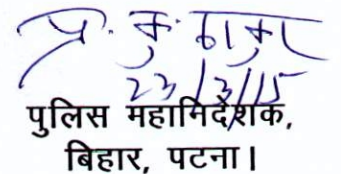 प्र. कु. ठाकुर
23/3/15
पुलिस महानिदेशक,
बिहार, पटना।